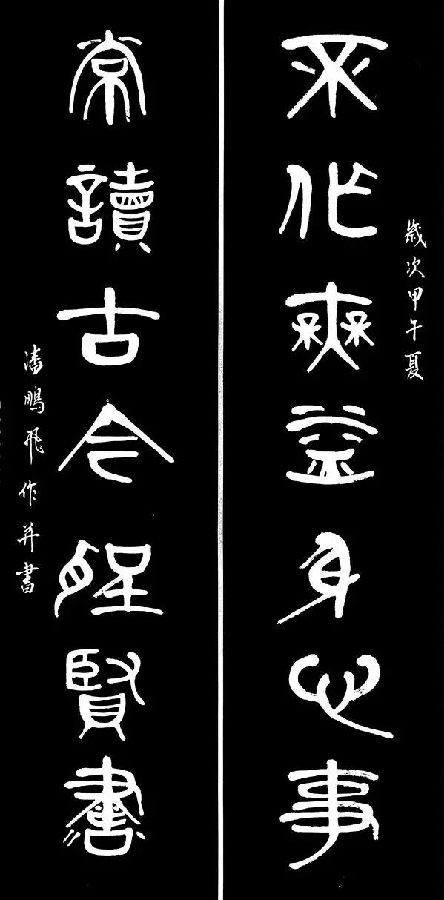 歲次甲午夏
不作無益身心事
常讀古今聖賢書
潘鵬飛作并書